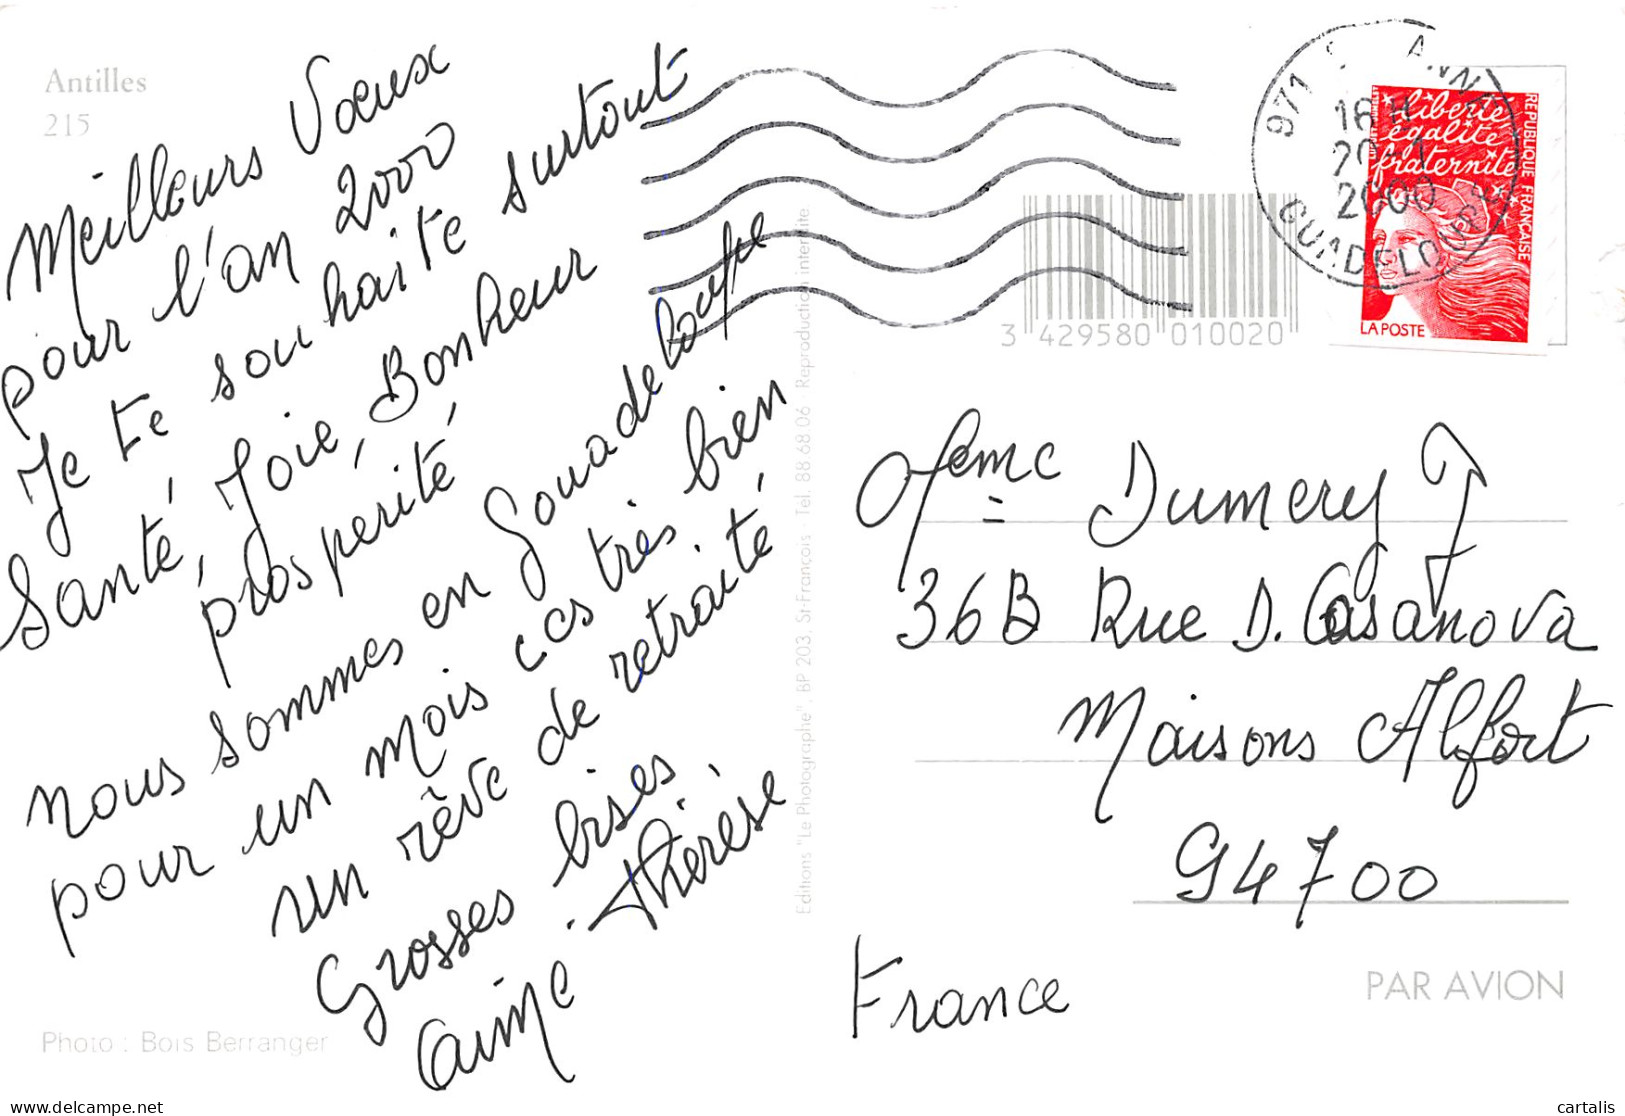 Antilles
215
Meilleurs Vœux
pour l'an 2000
Je te souhaite surtout
Santé, Joie, Bonheur
prosperité
nous sommes en Gouadeloupe
pour un mois ces très bien
un rêve de retraité
Grosses bises
Aimé - Thérèse
Photo : Bois Berranger
Editions "Le Photographe", BP 203, St-François - Tel. 88 68 06 - Reproduction interdite
3 429580 010020
971 ANNE
16 H
2000
GUADELOUPE
liberté
égalité
fraternité
REPUBLIQUE FRANÇAISE
LA POSTE
Mme Dumery J
36B Rue D. Casanova
Maisons Alfort
94700
France
PAR AVION
cartalis